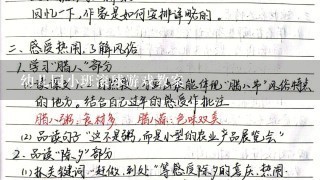 回忆一下,作家是如何安排详略的。
二、感受热闹,了解风俗
1.学习"腊八"部分
幼儿园小班体育游戏教案
能体现"腊八节"风俗特点
的地方。结合自己过年的感受作批注
腊八粥:食材多 腊八蒜:色味双美
(2)品读句子"这不是粥,而是小型的农业产品展览会"
2.品读"除夕"部分
(1)抓关键词"赶做、到处"等感受除夕的喜庆、热闹